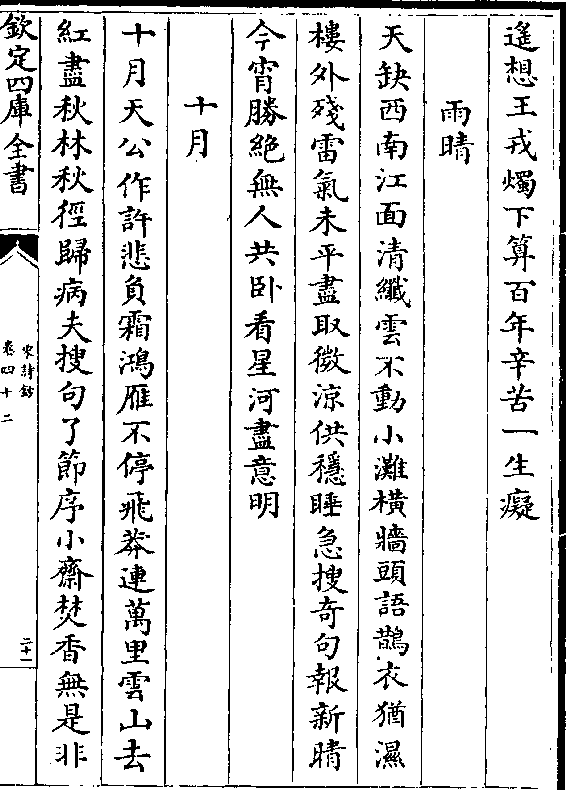 遙想王戎燭下算百年辛苦一生癡
雨晴
天缺西南江面清纖雲不動小灘橫牆頭語鵲衣猶濕
樓外殘雷氣未平盡取微涼供穩睡急搜奇句報新晴
今宵勝絶無人共卧看星河盡意明
十月
十月天公作許悲負霜鴻雁不停飛莽連萬里雲山去
紅盡秋林秋徑歸病夫搜句了節序小齋焚香無是非
欽定四庫全書
宋詩鈔
卷四十二
二十一